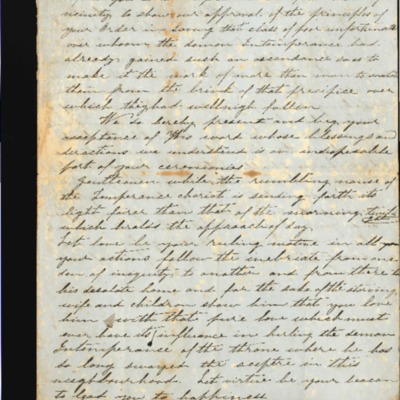 cinity to show our approval of the principles of
your Order in Loving that class of poor unfortunates
over whom the demon Intemperance had
already gained such an ascendance as to
make it the work of more than man to
them from the brink of that precipice over
which they had wellnigh fallen
We do hereby present and beg your
acceptance of this word whose blessings and
directions we understand is an indispensible
part of your ceremonies
Gentlemen while the rumbling noise of
the Temperance chariot is sending forth its
light fairer than that of the morning
which heralds the approach of day
Let love be your ruling motive in all your
your actions follow the inebriate from one
den of iniquity to another and from there to
his desolate home and for the sake of the starving
wife and children show him that you love
him with that pure love which must
ever have its influence in hurling the demon
Intemperance off the throne where he has
so long swayed the sceptre in this
neighbourhood. Let virtue be your beacon
to lead you to happiness